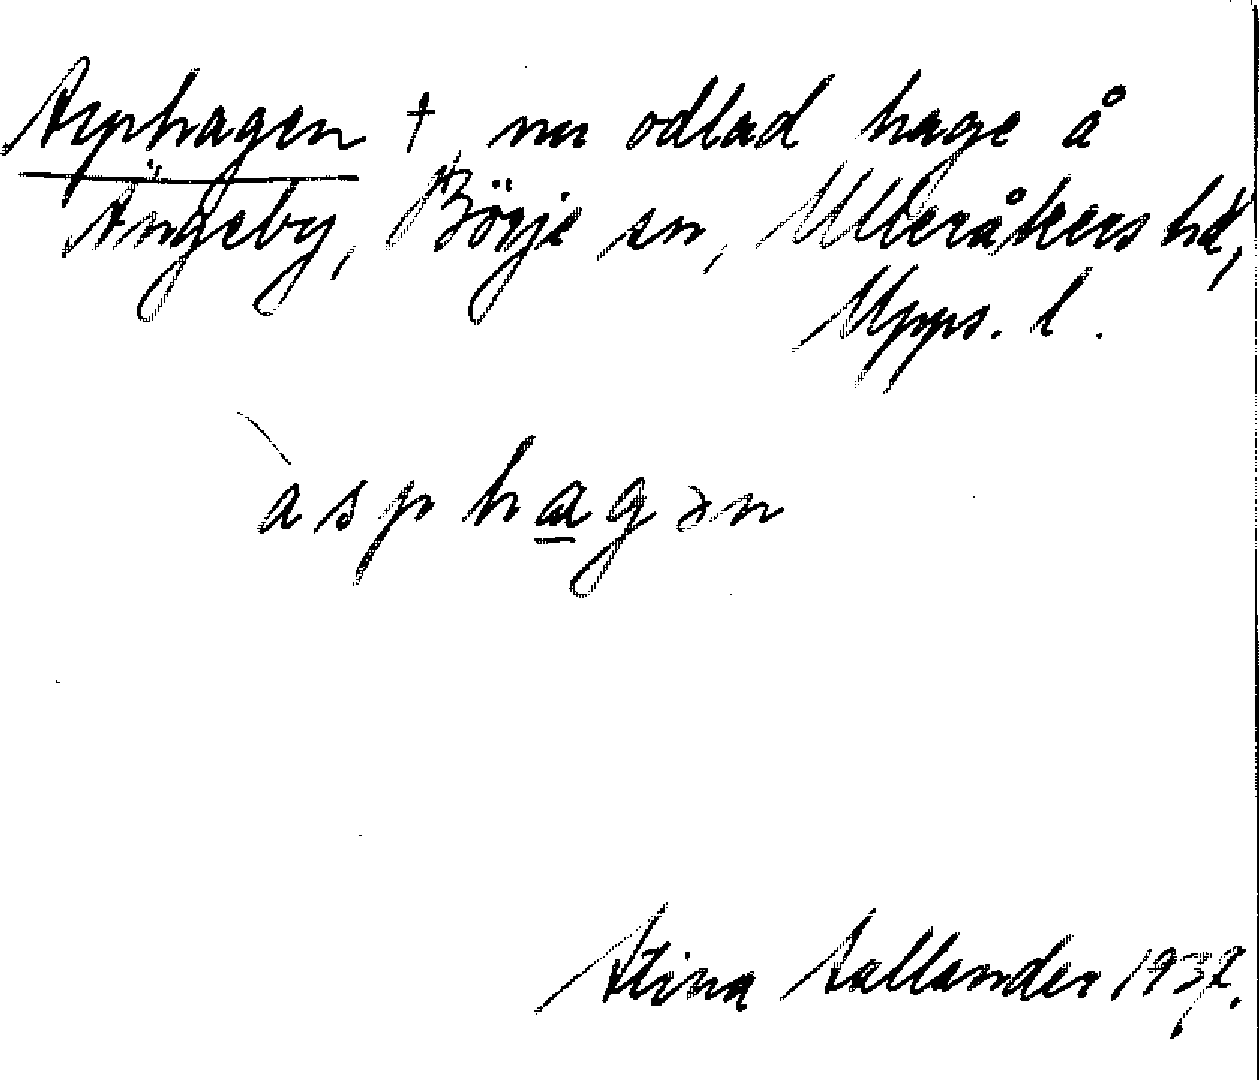 Asphagen † nu odlad hage å
Ängeby, Börje sn, Ulleråkers hd,
Upps. l.
àsphagən
Stina Sallander 1937.